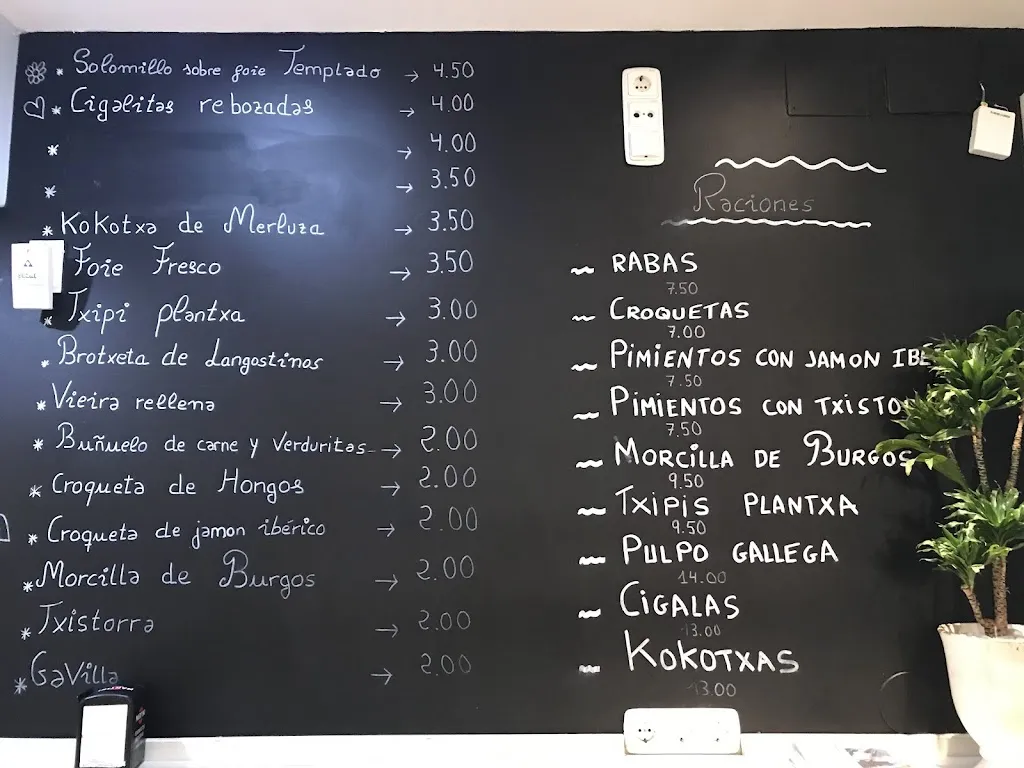 * Solomillo sobre foie Templado → 4.50
* Cigalitas rebozadas → 4.00
* → 4.00
* → 3.50
* Kokotxa de Merluza → 3.50
Foie Fresco → 3.50
* Txipi plantxa → 3.00
* Brotxeta de Langostinos → 3.00
* Vieira rellena → 3.00
* Buñuelo de carne y verduritas → 2.00
* Croqueta de Hongos → 2.00
* Croqueta de jamon ibérico → 2.00
* Morcilla de Burgos → 2.00
* Txistorra → 2.00
* Gavilla → 2.00
Raciones
~ RABAS
7.50
~ CROQUETAS
7.00
~ PIMIENTOS CON JAMON IBE
7.50
~ PIMIENTOS CON TXISTO
7.50
~ MORCILLA DE BURGOS
9.50
~ TXIPIS PLANTXA
9.50
~ PULPO GALLEGA
14.00
~ CIGALAS
13.00
~ KOKOTXAS
13.00